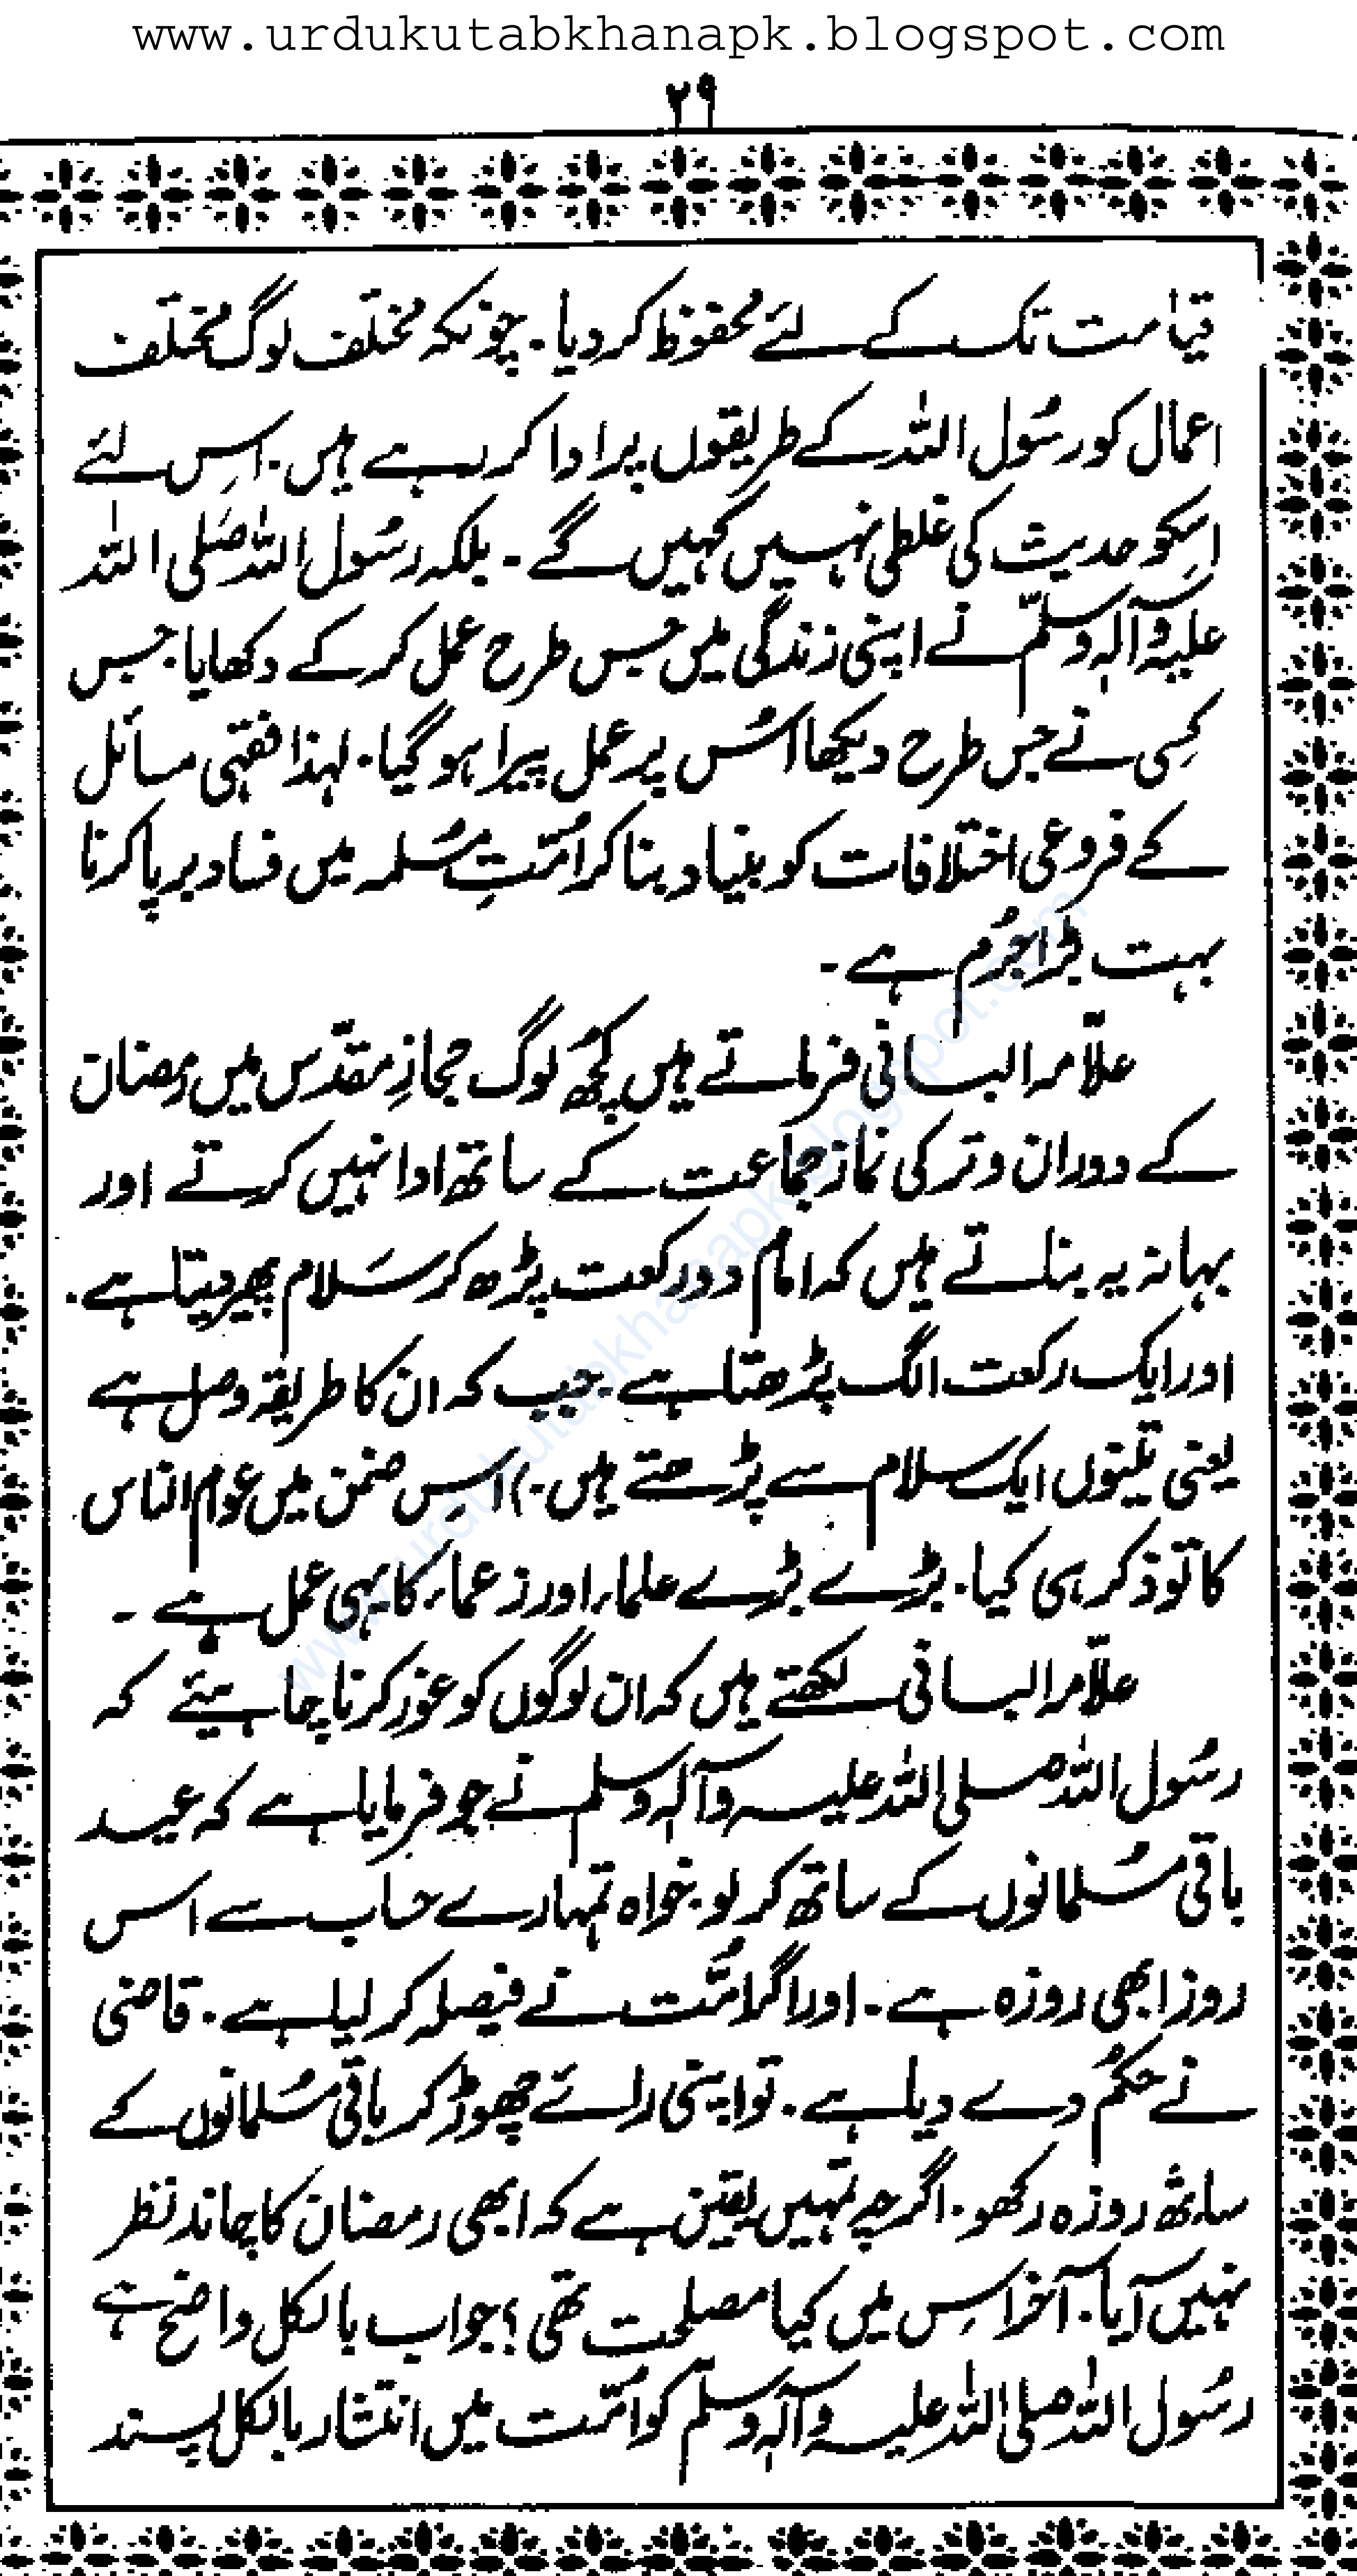 www.urdukutabkhanapk.blogspot.com
۲۹
قیامت تک کے لئے محفوظ کر دیا۔ چونکہ مختلف لوگ مختلف
اعمال کو رسُول اللہ کے طریقوں پر ادا کر رہے ہیں۔ اسِ لئے
اسِکو حدیث کی غلطی نہیں کہیں گے ۔ بلکہ رسُول اللہ صَلی اللہ
علیہ وآلہٖ وسلّم نے اپنی زندگی میں جس طرح عمل کر کے دکھایا۔ جس
کِسی نے جس طرح دیکھا اسُ پر عمل پیرا ہو گیا۔ لہذا فقہی مسائل
کے فروعی اختلافات کو بنیاد بنا کر امُتِ مسُلمہ میں فساد برپا کرنا
بہت بڑا جرُم ہے ۔
علاّمہ البانی فرماتے ہیں کچھ لوگ حجازِ مقدّس میں رمضان
کے دوران وتر کی نماز جماعت کے ساتھ ادا نہیں کرتے اور
بہانہ یہ بناتے ہیں کہ امام دو رکعت پڑھ کر سَلام پھیر دیتا ہے۔
اور ایک رکعت الگ پڑھتا ہے۔ جب کہ ان کا طریقہ وصل ہے
یعنی تینوں ایک سلام سے پڑھتے ہیں۔) اسِ ضمن میں عوام الناس
کا تو ذکر ہی کیا۔ بڑے بڑے علماء اور زعماء کا یہی عمل ہے ۔
علاّمہ البانی لکھتے ہیں کہ ان لوگوں کو غور کرنا چاہیئے کہ
رسُول اللہ صلی اللہ علیہ وآلہٖ وسلم نے جو فرمایا ہے کہ عید
باقی مسُلمانوں کے ساتھ کر لو۔ خواہ تمہارے حساب سے اس
روز ابھی روزہ ہے ۔ اور اگر امُّت نے فیصلہ کر لیا ہے ۔ قاضی
نے حکمُ دے دیا ہے ۔ تو اپنی رائے چھوڑ کر باقی مسُلمانوں کے
ساتھ روزہ رکھو۔ اگرچہ تمہیں یقین ہے کہ ابھی رمضان کا چاند نظر
نہیں آیا۔ آخر اسِ میں کیا مصلحت تھی ؟ جواب بالکل واضح ہے
رسُول اللہ صلی اللہ علیہ وآلہٖ وسلّم کو امُّت میں انتشار بالکل پسند
www.urdukutabkhanapk.blogspot.com